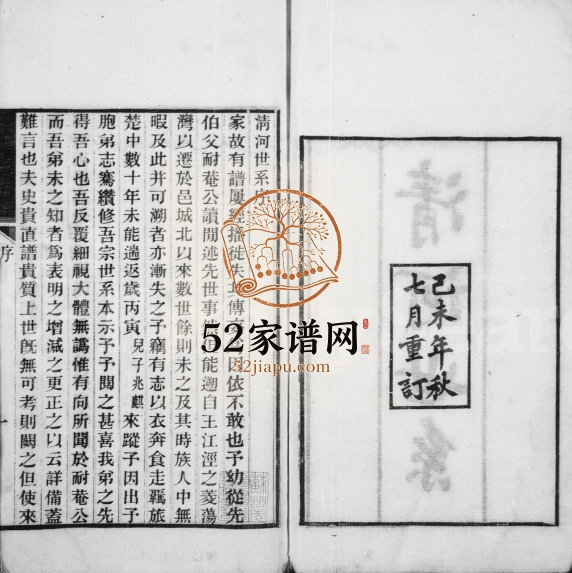 己未年秋
七月重訂
清河世系序
家故有譜屢經播徙失
伯父耐菴公讀閒述先世事能遡自王江涇之菱蕩
灣以遷於邑城北以來數世餘則未之及其時族人中無
暇及此并可溯者亦漸失之予竊有志以衣奔食走羈旅
楚中數十年未能遄返歲丙寅兒子兆麒來蹤子因出予
胞弟志騫纘修吾宗世系本示予予閱之甚喜我弟之先
得吾心也吾反覆細視大體無譌惟有向所聞於耐菴公
而吾弟未之知者為表明之增減之更正之以云詳備蓋
難言也夫史貴直譜貴質上世旣無可考則闕之但使來
序
52家谱网
52jiapu.com